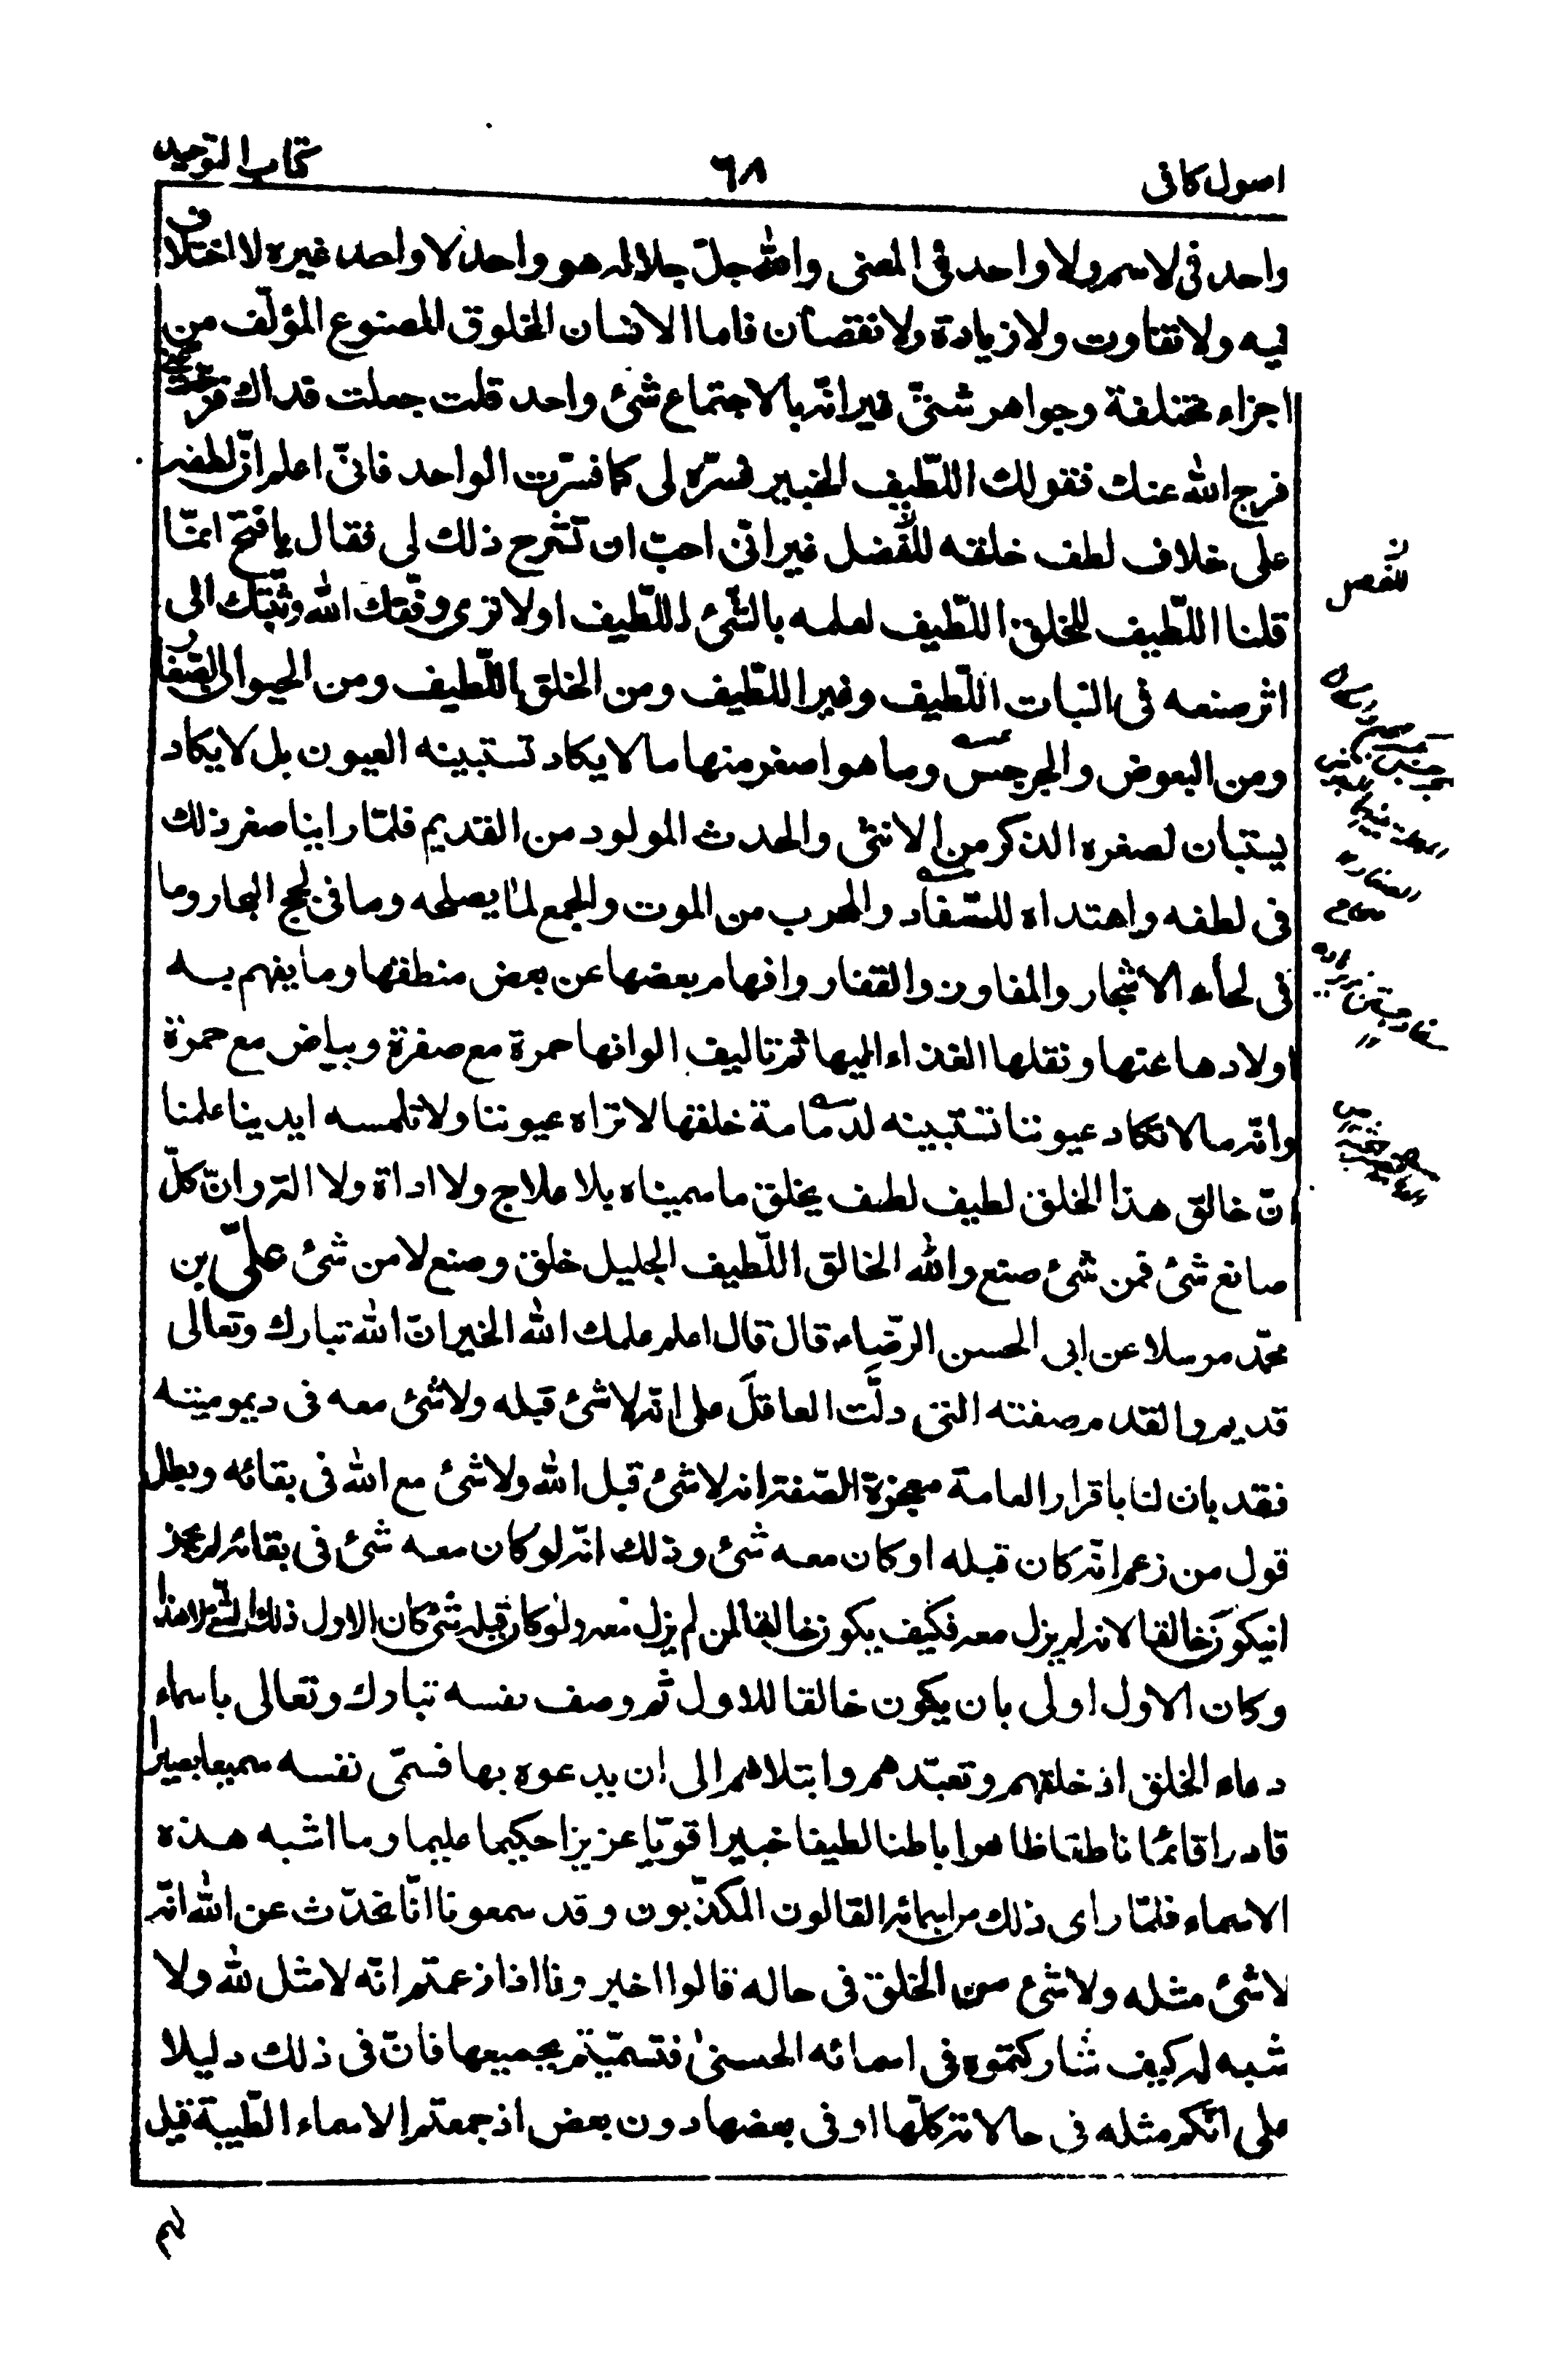 اصول كافى
٦٨
كتاب التوحيد
واحد فى لاسم ولا واحد فى المعنى والله جلّ جلاله هو واحد لا واحد غيره لا اختلاف
فيه ولا تفاوت ولا زيادة ولا نقصان فاما الانسان المخلوق المصنوع المؤلّف من
اجزاء مختلفة وجواهر شتىّ غير انّه بالاجتماع شئ واحد قلت جعلت فداك فرّجت عنى
فرج الله عنك فقولك اللّطيف الخبير فسّره لى كما فسّرت الواحد فانىّ اعلم انّ لطفه
على خلاف لطف خلقه للفضل غير انّى احبّ ان تشرح ذلك لى فقال يا فتح انمّا
للفصل
قلنا اللّطيف للخلق اللّطيف لعلمه بالشّئ اللّطيف او لا ترى وفّقك الله وثبّتك الى
اثر صنعه فى النبات اللّطيف وغير اللّطيف ومن الخلق اللّطيف ومن الحيوان الصّغار
ومن البعوض والجرجس وما هو اصغر منها ما لا يكاد تستبينه العيون بل لا يكاد
يستبان لصغره الذكر من الانثى والحدث المولود من القديم فلمّا راينا صغر ذلك
فى لطفه واهتداه للسّفاد والهرب من الموت والجمع لما يصلحه وما فى لجج البحار وما
فى لحاء الاشجار والمفاوز والقفار وافهام بعضها عن بعض منطقها وما يفهم به
اولادها عنها ونقلها الغذاء اليها ثم تاليف الوانها حمرة مع صفرة وبياض مع حمرة
وانّه ما لا تكاد عيوننا تستبينه لدمامة خلقها لا تراه عيوننا ولا تلمسه ايدينا علمنا
انّ خالق هذا الخلق لطيف لطف بخلق ما سميناه بلا علاج ولا اداة ولا الة وانّ كلّ
صانع شئ فمن شئ صنع والله الخالق اللّطيف الجليل خلق وصنع لا من شئ علىّ بن
محمّد مرسلا عن ابى الحسن الرضاء قال قال اعلم علمك الله الخير انّ الله تبارك وتعالى
قديم والقدم صفته التى دلّت العاقل على انّه لا شئ قبله ولا شئ معه فى ديموميته
فقد بان لنا باقرار العامة معجزة الصّفة انه لا شئ قبل الله ولا شئ مع الله فى بقائه وبطل
قول من زعم انّه كان قبله او كان معه شئ وذلك انّه لو كان معه شئ فى بقائه لم يجز
ان يكون خالقا لانه لم يزل معه فكيف يكون خالقا لمن لم يزل معه ولو كان قبله شئ كان الاول ذلك الشئ لا هذا
وكان الاول اولى بان يكون خالقا للاول ثم وصف نفسه تبارك وتعالى باسماء
دعاء الخلق اذ خلقهم وتعبّدهم وابتلاهم الى ان يدعوه بها فسمّى نفسه سميعا بصيرا
قادرا قائما ناطقا ظاهرا باطنا لطيفا خبيرا قويّا عزيزا حكيما عليما وما اشبه هذه
الاسماء فلمّا راى ذلك من اسمائه القالون المكذّبون وقد سمعونا انّا نحدّث عن الله انّه
لا شئ مثله ولا شئ من الخلق فى حاله قالوا اخبرونا اذا زعمتم انّه لا مثل لله ولا
شبه له كيف شاركتموه فى اسمائه الحسنى فتسمّيتم بجميعها فانّ فى ذلك دليلا
على انّكم مثله فى حالاته كلّها او فى بعضها دون بعض اذ جمعتم الاسماء الطّيبة قيل
لهم